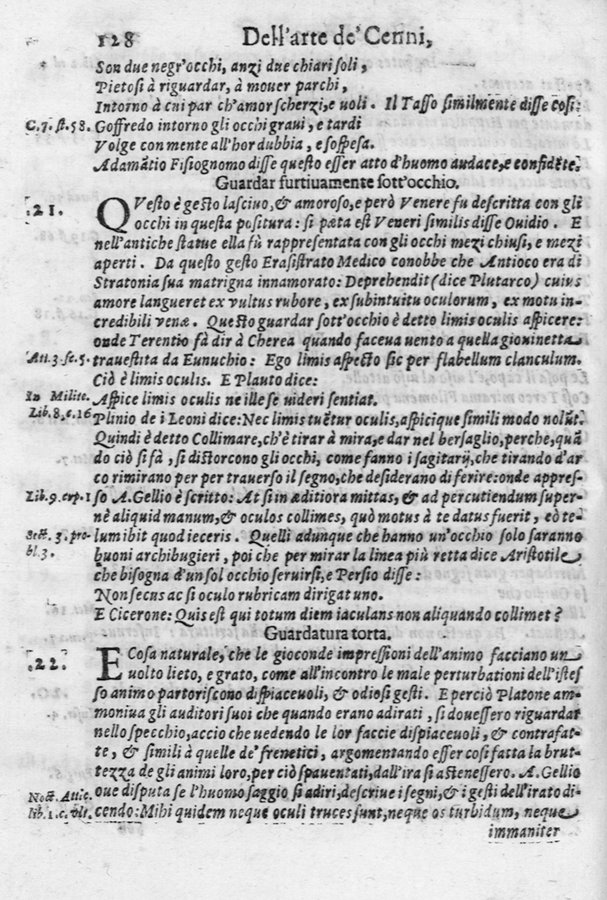 128 Dell'arte de' Cenni,
Son due negr'occhi, anzi due chiari soli,
Pietosi à riguardar, à mouer parchi,
Intorno à cui par ch'amor scherzi, e uoli. Il Tasso similmente disse cosi:
C. 7. st. 58. Goffredo intorno gli occhi graui, e tardi
Volge con mente all'hor dubbia, e sospesa.
Adamãtio Fisiognomo disse questo esser atto d'huomo audace, e confidẽte.
Guardar furtiuamente sott'occhio.
21. QVesto è gesto lasciuo, & amoroso, e però Venere fu descritta con gli
occhi in questa positura: si pæta est Veneri similis disse Ouidio. E
nell'antiche statue ella fù rappresentata con gli occhi mezi chiusi, e mezi
aperti. Da questo gesto Erasistrato Medico conobbe che Antioco era di
Stratonia sua matrigna innamorato: Deprehendit (dice Plutarco) cuius
amore langueret ex vultus rubore, ex subintuitu oculorum, ex motu in-
credibili venæ. Questo guardar sott'occhio è detto limis oculis aspicere:
onde Terentio fà dir à Cherea quando faceua uento a quella giouinetta
Att. 3. sc. 5. trauestita da Eunuchio: Ego limis aspecto sic per flabellum clanculum.
Ciò è limis oculis. E Plauto dice:
In Milite. Aspice limis oculis ne ille se uideri sentiat.
Lib. 8. c. 16 Plinio de i Leoni dice: Nec limis tuẽtur oculis, aspicique simili modo nolũt.
Quindi è detto Collimare, ch'è tirar à mira, e dar nel bersaglio, perche, quã
do ciò si fà, si distorcono gli occhi, come fanno i sagitarij, che tirando d'ar
co rimirano per per trauerso il segno, che desiderano di ferire: onde appres-
Lib. 9. cap. 1 so A. Gellio è scritto: At si in æditiora mittas, & ad percutiendum super-
nè aliquid manum, & oculos collimes, quò motus à te datus fuerit, eò te-
Sect. 3. pro- lum ibit quod ieceris. Quelli adunque che hanno un'occhio solo saranno
bl. 3. buoni archibugieri, poi che per mirar la linea più retta dice Aristotile
che bisogna d'un sol occhio seruirsi, e Persio disse:
Non secus ac si oculo rubricam dirigat uno.
E Cicerone: Quis est qui totum diem iaculans non aliquando collimet?
Guardatura torta.
22. E Cosa naturale, che le gioconde impressioni dell'animo facciano un
uolto lieto, e grato, come all'incontro le male perturbationi dell'istes
so animo partoriscono dispiaceuoli, & odiosi gesti. E perciò Platone am-
moniua gli auditori suoi che quando erano adirati, si douessero riguardar
nello specchio, accio che uedendo le lor faccie dispiaceuoli, & contrafat-
te, & simili à quelle de' frenetici, argomentando esser cosi fatta la brut-
tezza de gli animi loro, per ciò spauentati, dall'ira si astenessero. A. Gellio
Noct. Attic. oue disputa se l'huomo saggio si adiri, descriue i segni, & i gesti dell'irato di-
lib. 1. c. vlt. cendo: Mihi quidem neque oculi truces sunt, neque os turbidum, neque
immaniter